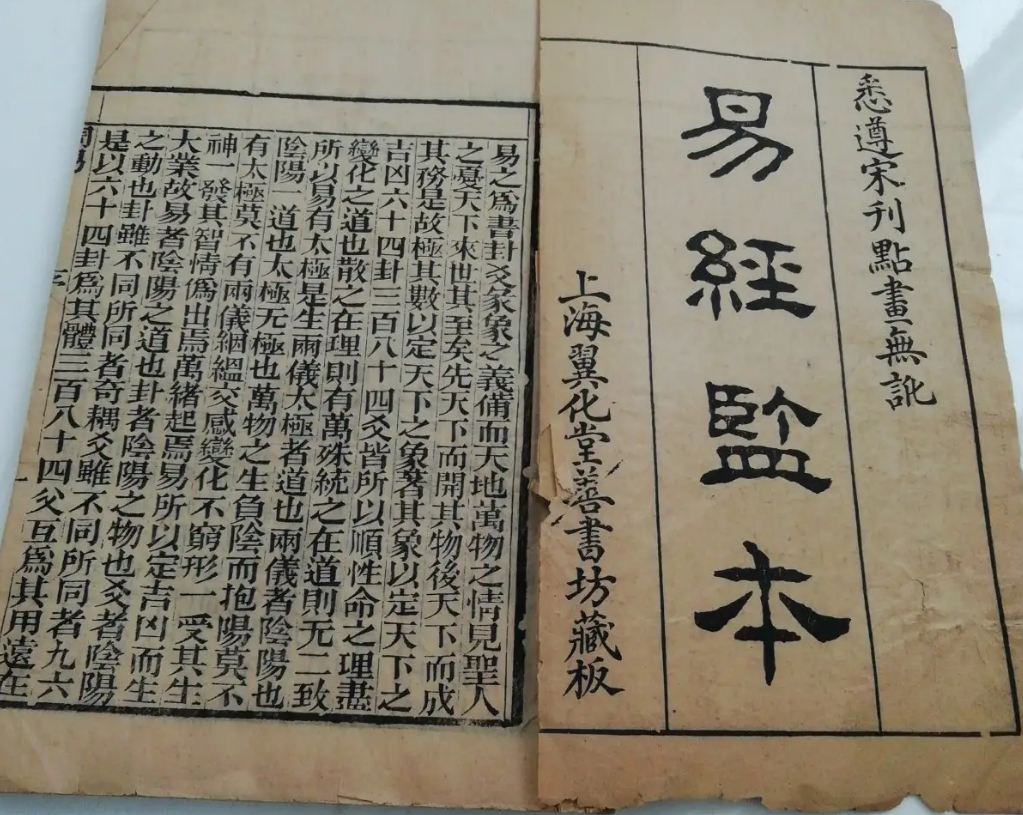 悉遵宋刊點畫無訛
易經監本
上海翼化堂善書坊藏板
易之爲書卦爻彖象之義備而天地萬物之情見聖人
之憂天下來世其至矣先天下而開其物後天下而成
其務是故極其數以定天下之象著其象以定天下之
吉凶六十四卦三百八十四爻皆所以順性命之理盡
變化之道也散之在理則有萬殊統之在道則无二致
所以易有太極是生兩儀太極者道也兩儀者陰陽也
陰陽一道也太極无極也萬物之生負陰而抱陽莫不
有太極莫不有兩儀絪縕交感變化不窮形一受其生
神一發其智情僞出焉萬緒起焉易所以定吉凶而生
大業故易者陰陽之道也卦者陰陽之物也爻者陰陽
之動也卦雖不同所同者奇耦爻雖不同所同者九六
是以六十四卦爲其體三百八十四爻互爲其用遠在